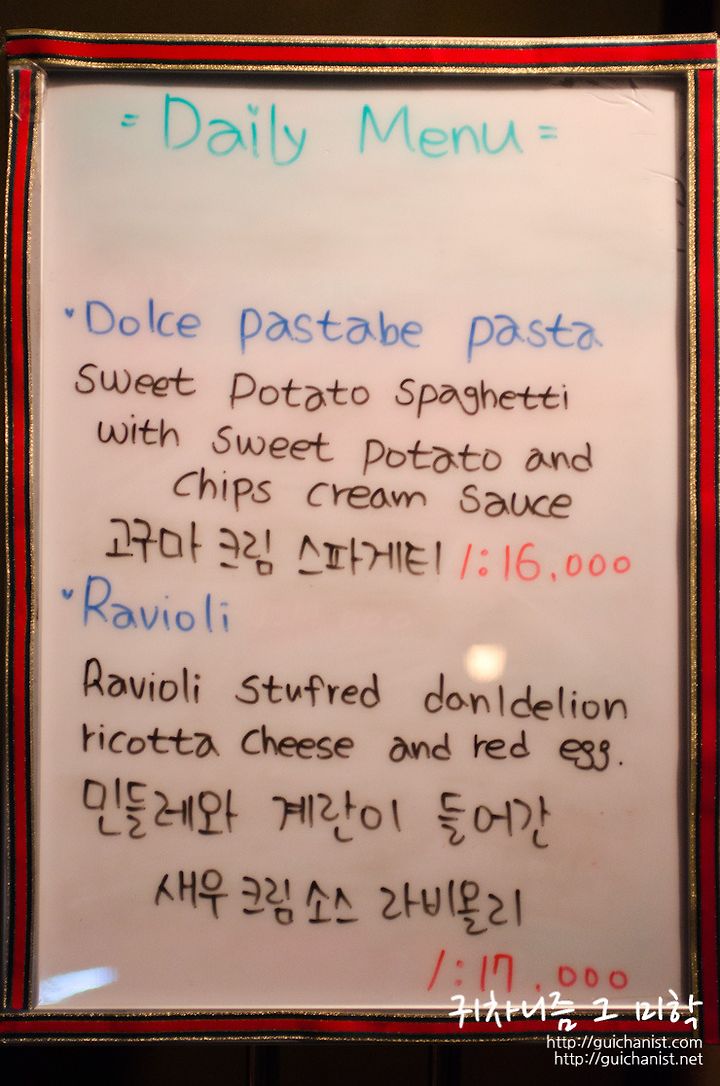 = Daily Menu =
Dolce pastabe pasta
Sweet Potato Spaghetti
with Sweet potato and
chips cream sauce
고구마 크림 스파게티 1:16,000
Ravioli
Ravioli stufred danldelion
ricotta cheese and red egg.
민들레와 계란이 들어간
새우 크림소스 라비올리
1:17,000
귀차니즘 그 미학
http://guichanist.com
http://guichanist.net